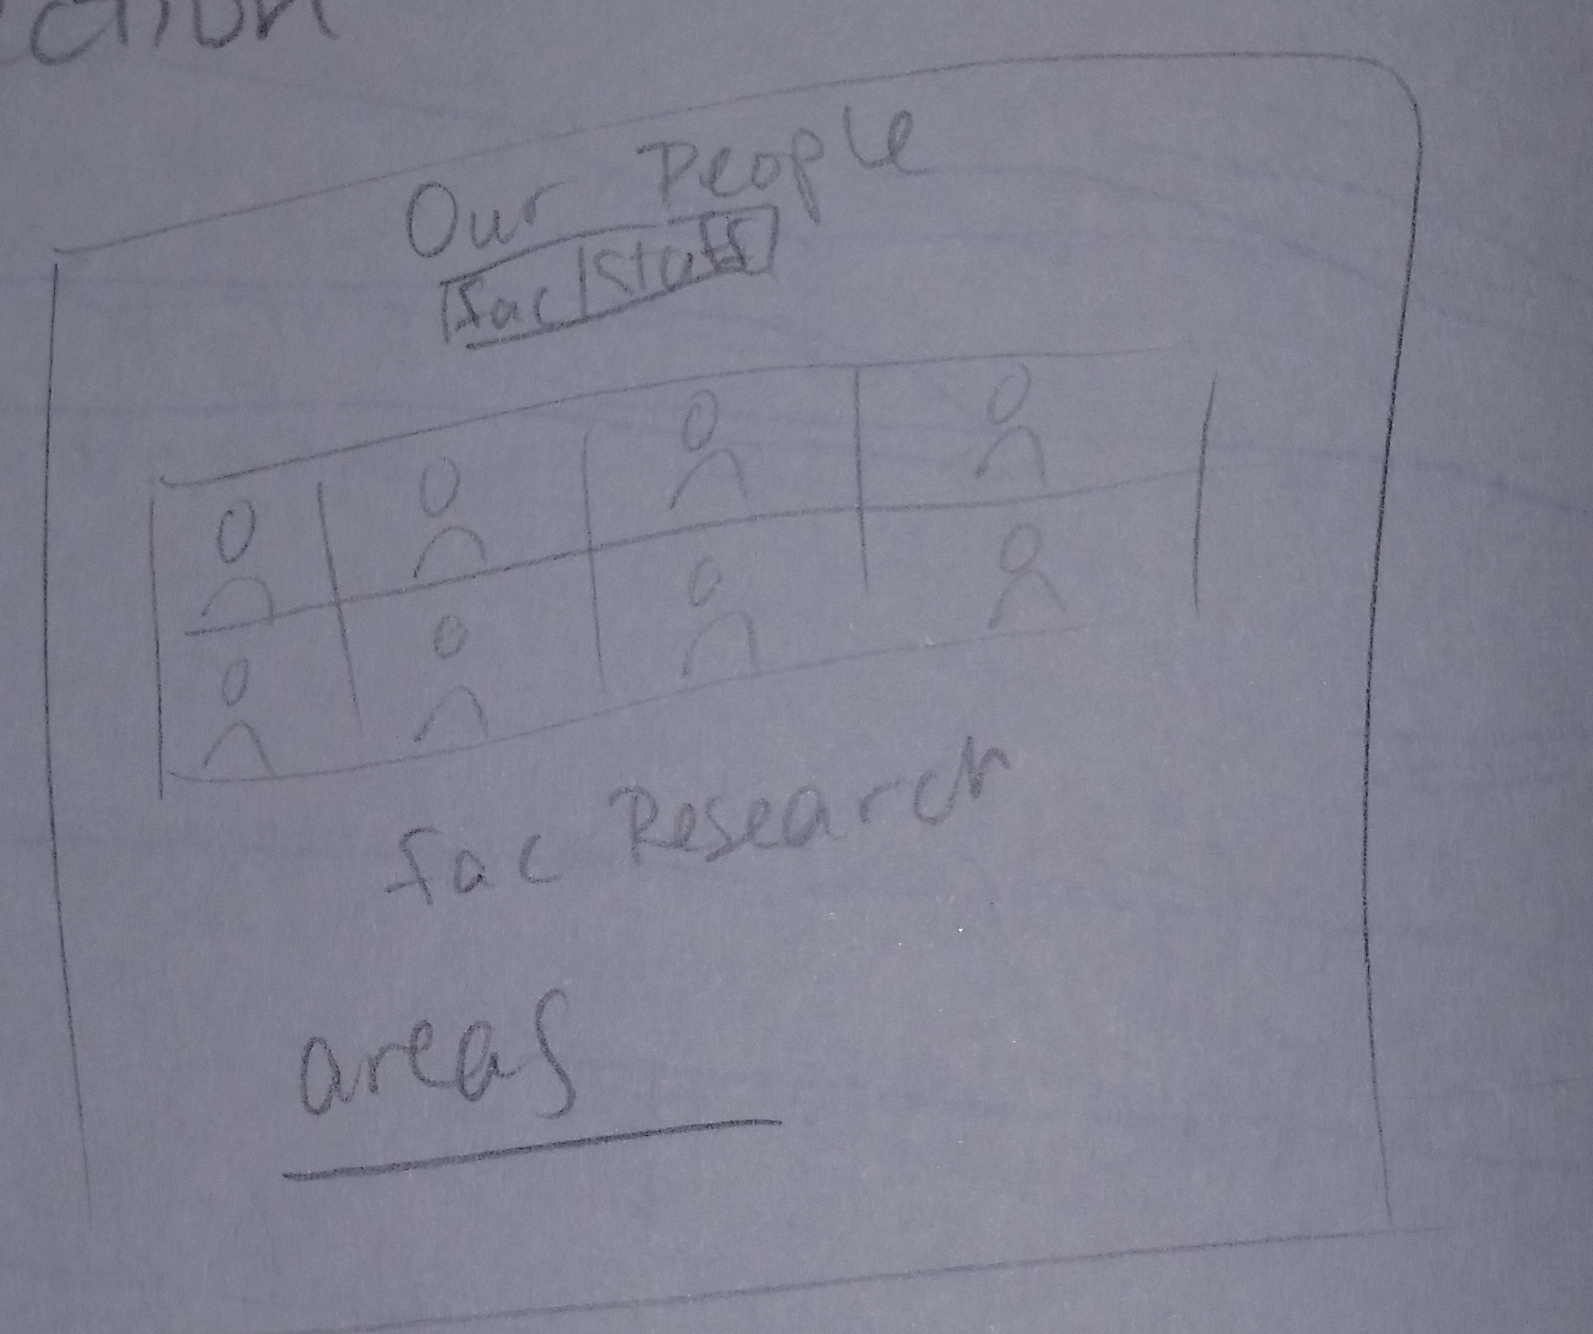 ction
Our People
fac/Staff
fac Research
areas